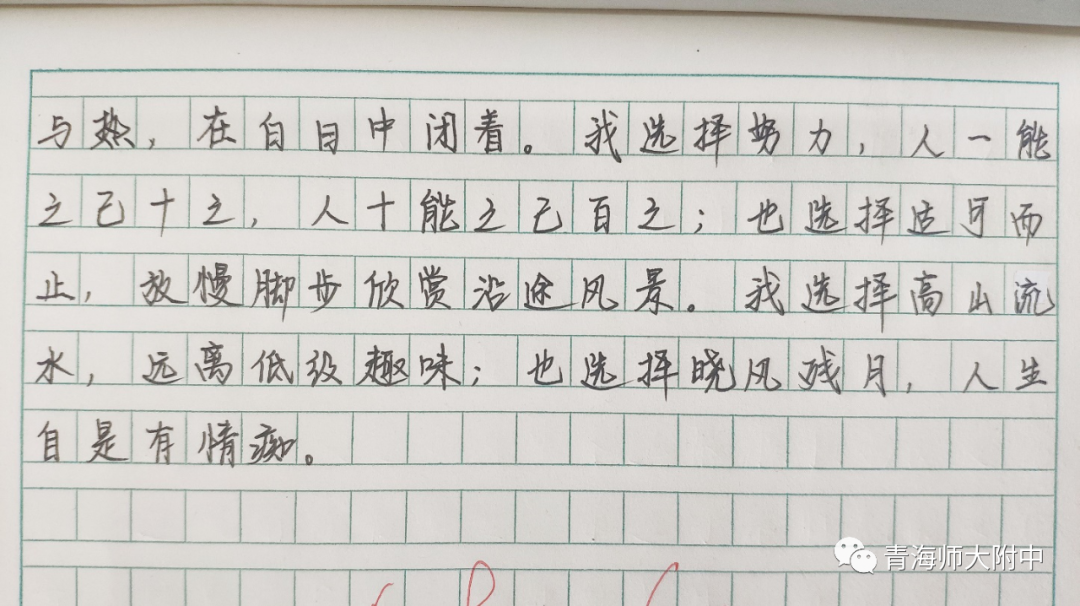 与热，在白日中闭着。我选择努力，人一能
之己十之，人十能之己百之；也选择适可而
止，放慢脚步欣赏沿途风景。我选择高山流
水，远离低级趣味；也选择晓风残月，人生
自是有情痴。
青海师大附中